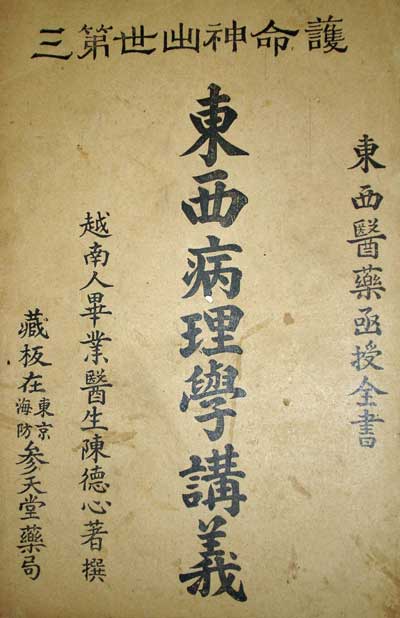 護命神出世第三
東西醫藥凾授全書
東西病理學講義
越南人畢業醫生陳德心著撰
藏板在東京海防参天堂藥局